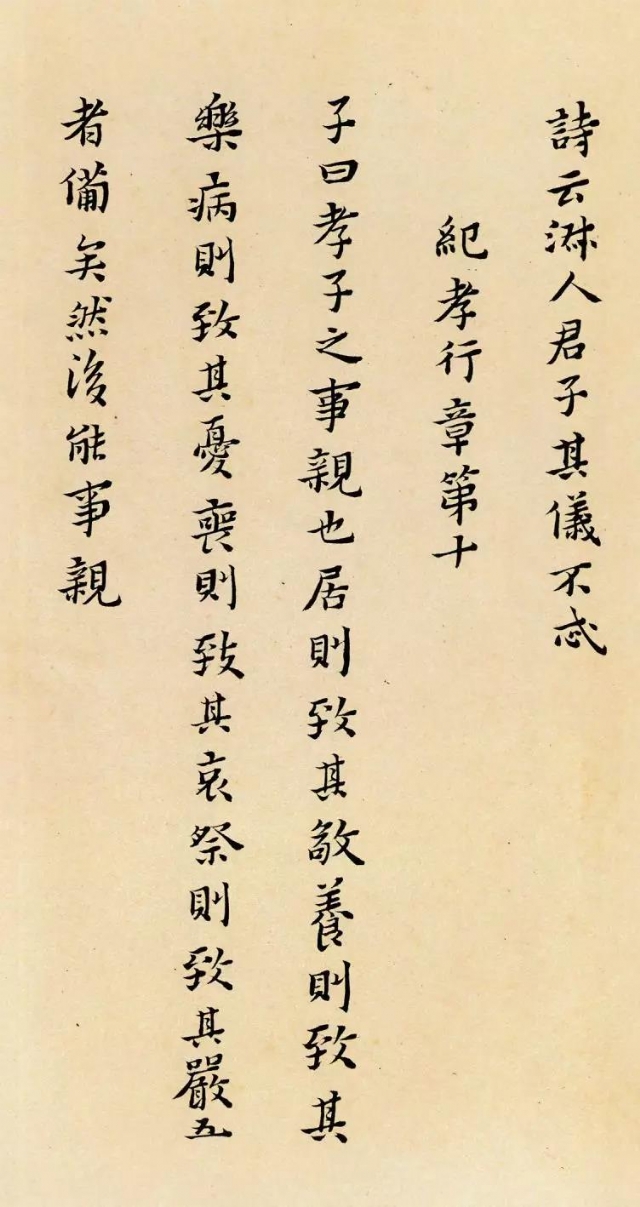 詩云淋人君子其儀不忒
紀孝行章第十
子曰孝子之事親也居則致其敬養則致其
樂病則致其憂喪則致其哀祭則致其嚴五
者備矣然後能事親